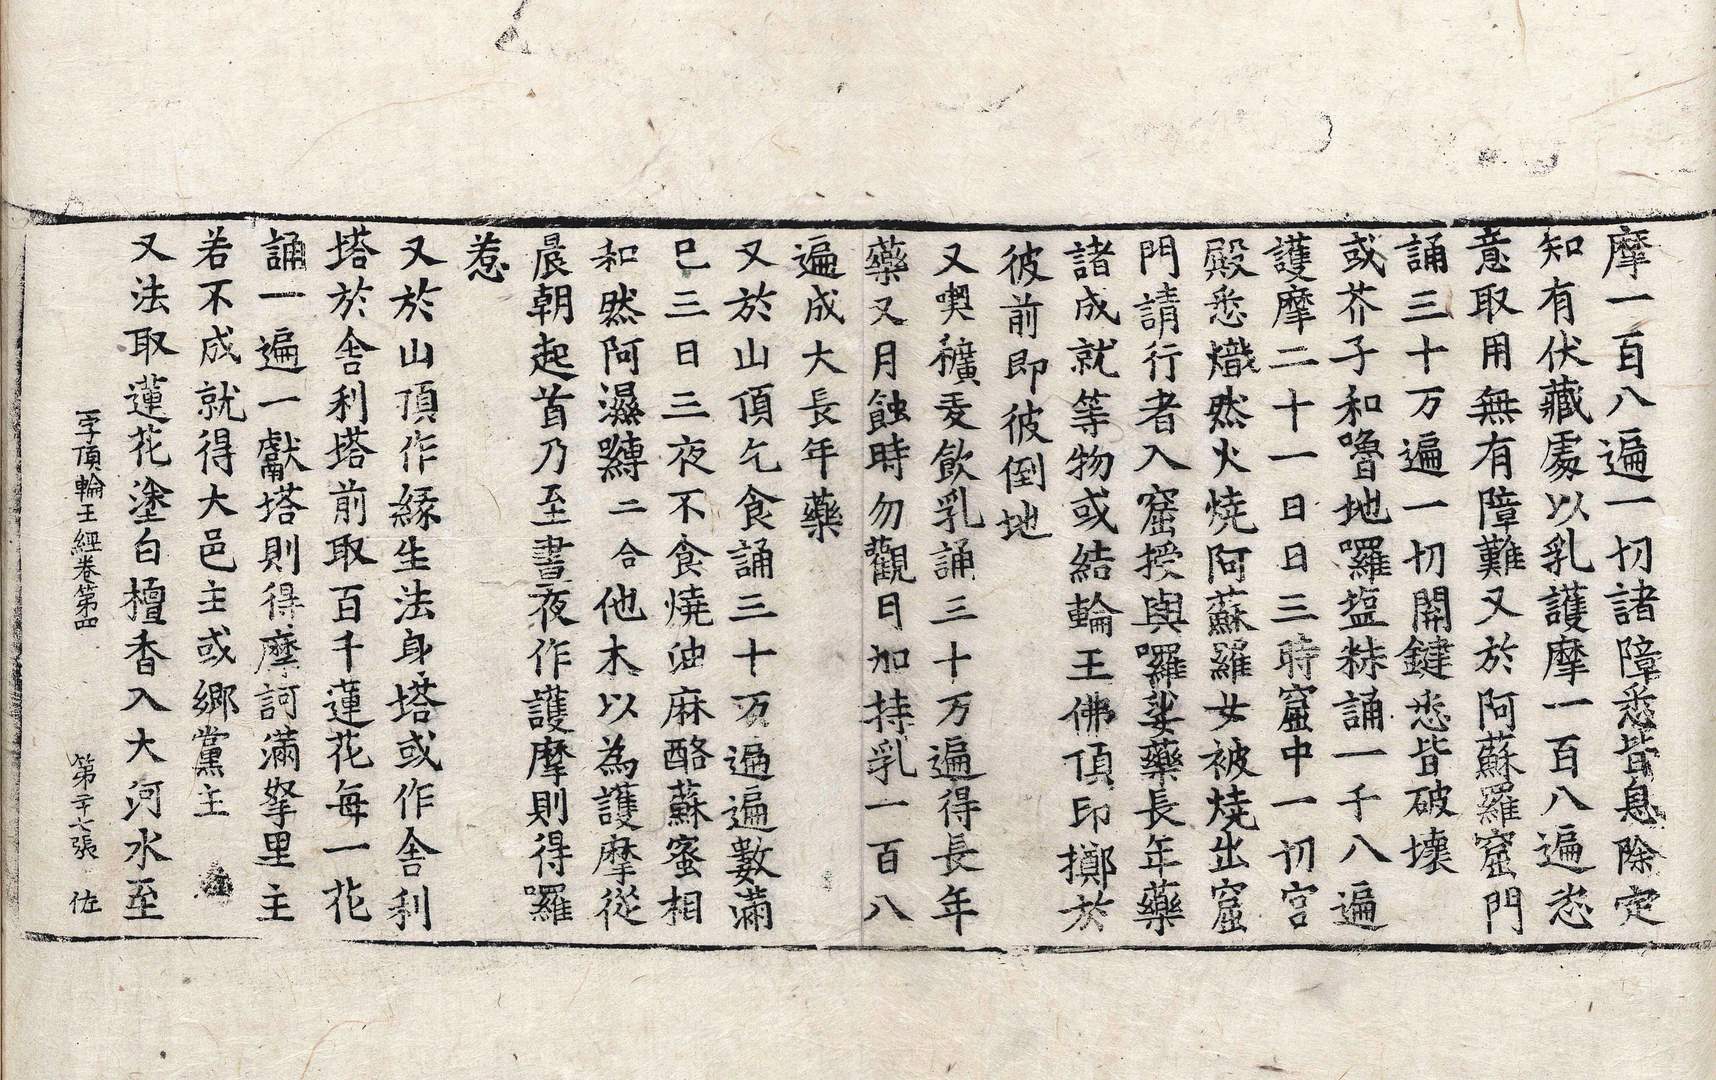 摩一百八遍一切諸障悉皆息除定
知有伏藏處以乳護摩一百八遍悉
意取用無有障難又於阿蘇羅窟門
誦三十万遍一切開鍵悉皆破壞
或芥子和嚕地囉塩秣誦一千八遍
護摩二十一日日三時窟中一切宮
殿悉熾然火燒阿蘇羅女被燒出窟
門請行者入窟授與囉娑藥長年藥
諸成就等物或結輪王佛頂印擲於
彼前即彼倒地
又喫穬麦飲乳誦三十万遍得長年
藥又月蝕時勿觀日加持乳一百八
遍成大長年藥
又於山頂乞食誦三十万遍遍數滿
巳三日三夜不食燒油麻酪蘇蜜相
和然阿濕嚩二合他木以為護摩從
晨朝起首乃至晝夜作護摩則得囉
惹
又於山頂作緣生法身塔或作舍利
塔於舍利塔前取百千蓮花每一花
誦一遍一獻塔則得摩訶滿拏里主
若不成就得大邑主或鄉黨主
又法取蓮花塗白檀香入大河水至
一字頂輪王經卷第四 第二十七張 佐